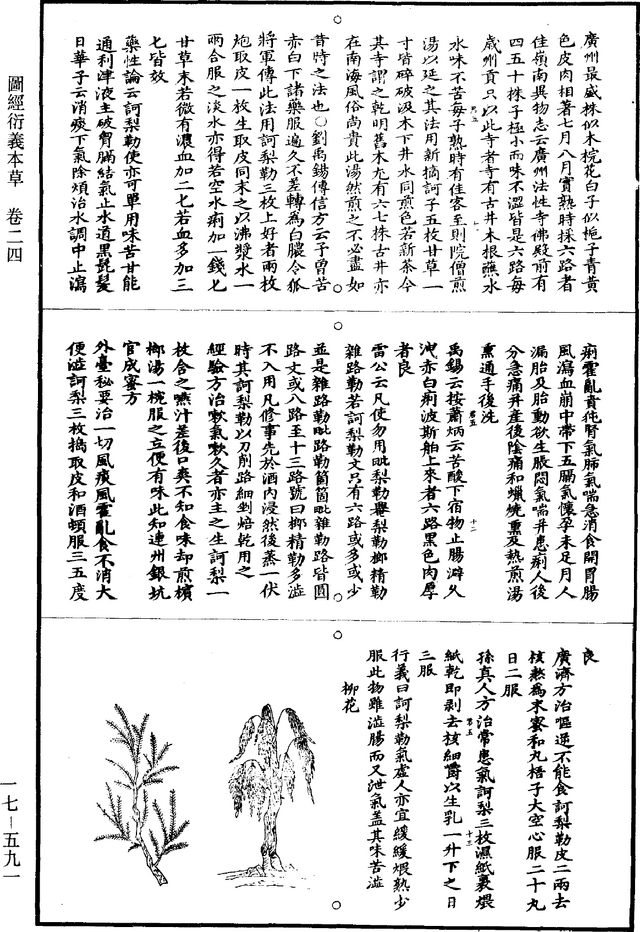 圖經衍義本草　卷二四
廣州最盛株似木梡花白子似梔子青黃
色皮肉相著七月八月實熟時採六路者
佳嶺南異物志云廣州法性寺佛殿前有
四五十株子極小而味不澀皆是六路每
歲州貢只以此寺者寺有古井木根蘸水
水味不苦每子熟時有佳客至則院僧煎
湯以延之其法用新摘訶子五枚甘草一
寸皆碎破汲木下井水同煎色若新茶今
其寺謂之乾明舊木尤有六七株古井亦
在南海風俗尚貴此湯然煎之不必盡如
昔時之法也○劉禹錫傳信方云予曾苦
赤白下諸藥服遍久不差轉為白膿令狐
將軍傳此法用訶梨勒三枚上好者兩枚
炮取皮一枚生取皮同末之以沸漿水一
兩合服之淡水亦得若空水痢加一錢匕
甘草末若微有濃血加二匕若血多加三
匕皆効
藥性論云訶梨勒使亦可單用味苦甘能
通利津液主破胷膈結氣止水道黑髭髮
日華子云消痰下氣除煩治水調中止瀉
痢霍亂賁㹠腎氣肺氣喘急消食開胃腸
風瀉血崩中帶下五膈氣懷孕未足月人
漏胎及胎動欲生脹悶氣喘并患痢人後
分急痛并產後陰痛和蠟燒熏及熱煎湯
熏通手後洗
禹錫云按蕭炳云苦酸下宿物止腸澼久
洩赤白痢波斯舶上來者六路黑色肉厚
者良
雷公云凡使勿用毗梨勒罨梨勒榔精勒
雜路勒若訶梨勒文只有六路或多或少
並是雜路勒毗路勒箇箇毗雜勒路皆圓
路文或八路至十三路號曰榔精勒多澁
不入用凡修事先於酒內浸然後蒸一伏
時其訶梨勒以刀削路細剉焙乾用之
經驗方治嗽氣嗽久者亦主之生訶梨一
枚含之嚥汁差後口爽不知食味却煎檳
榔湯一椀服之立便有味此知連州銀坑
官成蜜方
外臺秘要治一切風痰風霍亂食不消大
便澁訶梨三枚搗取皮和酒頓服三五度
良
廣濟方治嘔逆不能食訶梨勒皮二兩去
核熬為末蜜和丸梧子大空心服二十丸
日二服
孫真人方治常患氣訶梨三枚濕紙裹煨
紙乾即剥去核細嚼以生乳一升下之日
三服
衍義曰訶梨勒氣虛人亦宜緩緩煨熟少
服此物雖澁腸而又泄氣蓋其味苦澁
柳花
一七－五九一